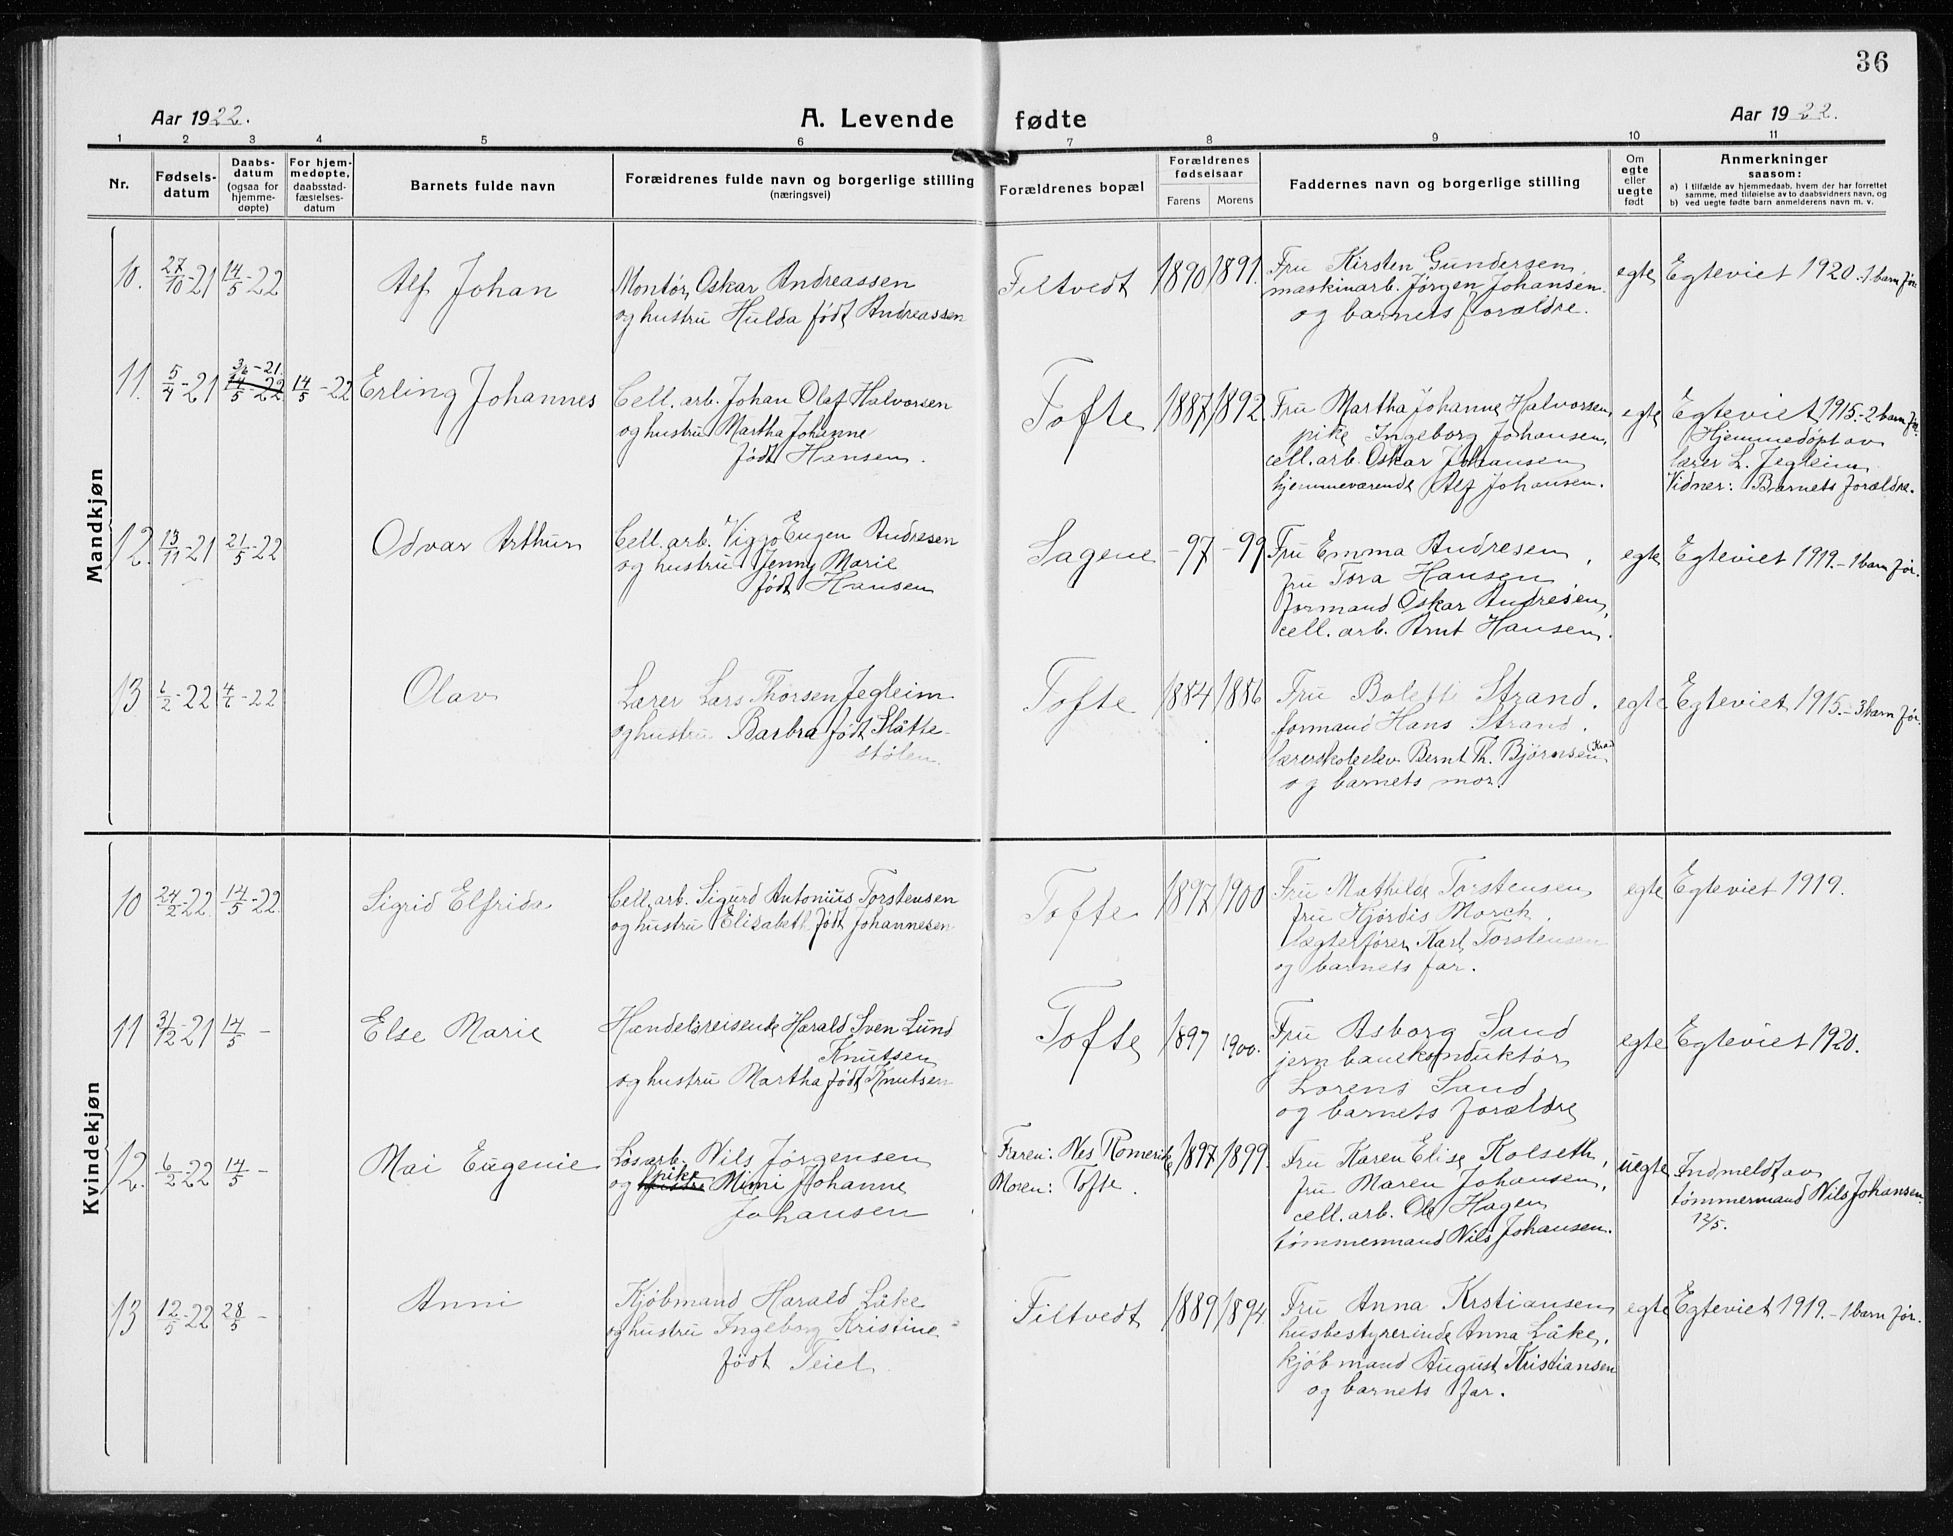 36
Aar 1922. A. Levende fødte Aar 1922.
1 2 3 4 5 6 7 8 9 10 11
Nr.
Fødsels-
datum
Daabs-
datum
(ogsaa for
hjemme-
døpte)
For hjem-
medøpte,
daabsstad-
fæstelses-
datum
Barnets fulde navn
Forældrenes fulde navn og borgerlige stilling
(næringsvei)
Forældrenes bopæl
Forældrenes
fødselsaar
Farens Morens
Faddernes navn og borgerlige stilling
Om
egte
eller
uegte
født
Anmerkninger
saasom:
a) I tilfælde av hjemmedaab, hvem der har forrettet
samme, med tilføielse av to daabsvidners navn, og
b) ved uegte fødte barn anmelderens navn m. v.
Mandkjøn
10. 27/10-21 14/5-22
Alf Johan
Montør Oskar Andreassen
og hustru Hulda født Andreassen
Filtvedt
1890 1891.
Fru Kirsten Gundersen,
maskinarb. Jørgen Johansen
og barnets forældre.
egte
Egteviet 1920.-1 barn før.
11. 5/4-21 3/6-21. 14/5-22 14/5-22
Erling Johannes
Cell. arb. Johan Olaf Halvorsen
og hustru Martha Johanne
født Hansen.
Tofte
1887 1892.
Fru Martha Johanne Halvorsen,
pike Ingeborg Johansen,
cell. arb. Oskar Johansen
hjemmeværende Alf Johansen.
egte
Egteviet 1915.-2 barn før.
Hjemmedøpt av
lærer L. Jegleim
Vidner: Barnets forældre.
12. 13/11-21 21/5-22
Odvar Arthur
Cell. arb. Viggo Eugen Andresen
og hustru Jenny Marie
født Hansen
Sagene
-97 -99
Fru Emma Andresen,
fru Tora Hansen,
formand Oskar Andresen,
cell. arb. Arnt Hansen.
egte
Egteviet 1919.-1 barn før.
13 6/2-22 4/6-22
Olav
Lærer Lars Thorsen Jegleim
og hustru Barbra født Slåtte-
stølen.
Tofte
1884 1886
Fru Bolette Strand.
formand Hans Strand.
lærerskoleelev Bernt Th. Bjørnsen
og barnets mor.
egte
Egteviet 1915.-3 barn før.
Kvindekjøn
10 24/2-22. 14/5-22.
Sigrid Elfrida
Cell. arb. Sigurd Antonius Torstensen
og hustru Elisabeth født Johannesen
Tofte
1897 1900
Fru Mathilde Torstensen
fru Hjørdis Morch.
lægterfører Karl Torstensen
og barnets far.
egte
Egteviet 1919.
11 31/12-21 14/5 -
Else Marie
Handelsreisende Harald Sven Lund
Knutsen
og hustru Martha født Knutsen
Tofte
1897 1900.
Fru Asborg Sand
jernbanekonduktør
Lorens Sand
og barnets forældre
egte
Egteviet 1920.
12. 6/2-22 14/5 -
Mai Eugenie
Løsarb. Nils Jørgensen
og hustru pike Mimi Johanne
Johansen
Faren: Nes Romerike
Moren: Tofte.
1897 1899.
Fru Karen Elise Kolseth,
fru Maren Johansen,
cell. arb. Ole Hagen
tømmermand Nils Johansen.
uegte
Indmeldt av
tømmermand Nils Johansen
12/5.
13 12/5-22 28/5 -
Anni
Kjøbmand Harald Låke
og hustru Ingeborg Kristine
født Teiel
Filtvedt
1889 1894.
Fru Anna Krstiansen
husbestyrerinde Anna Låke,
kjøbmand August Kristiansen
og barnets far.
egte
Egteviet 1919.-1 barn før.